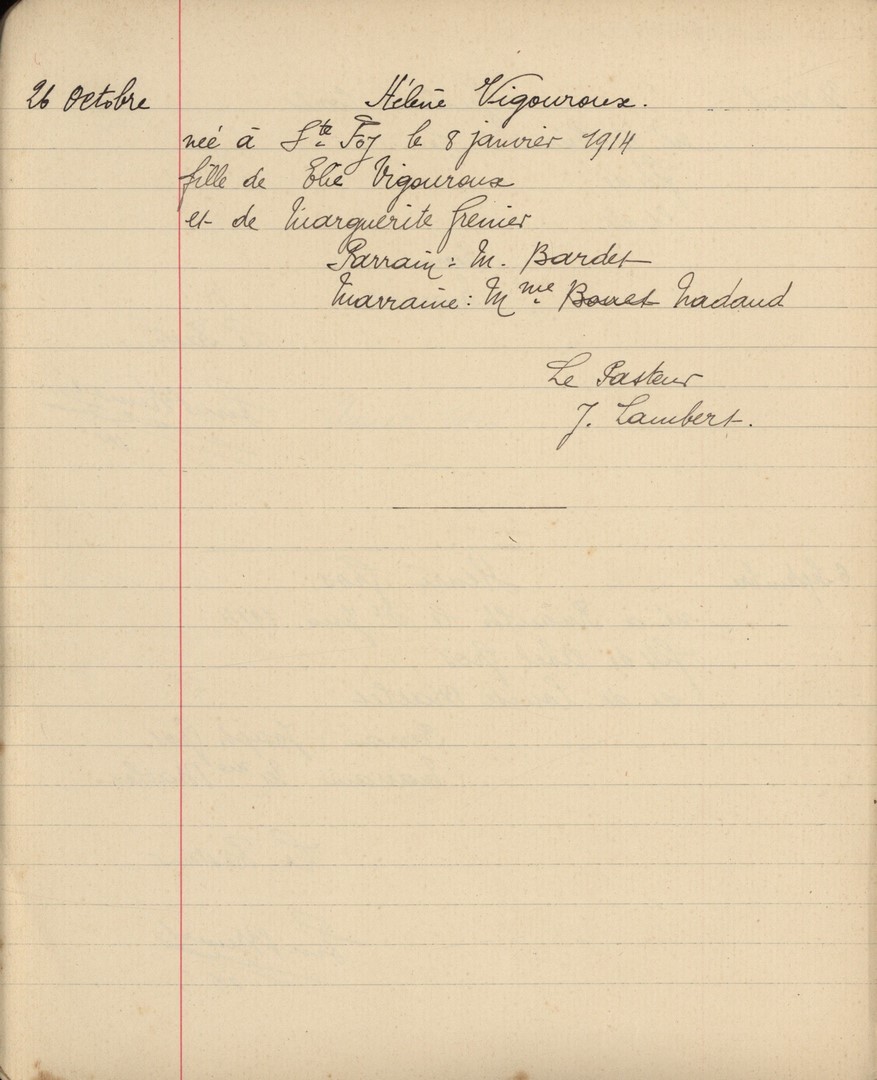 26 Octobre Hélène Vigouroux.
née à Ste Foy le 8 janvier 1914
fille de Elie Vigouroux
et de Marguerite Grenier
Parrain : M. Bardet
Marraine : Mme Nadaud
Le Pasteur
J. Lambert.